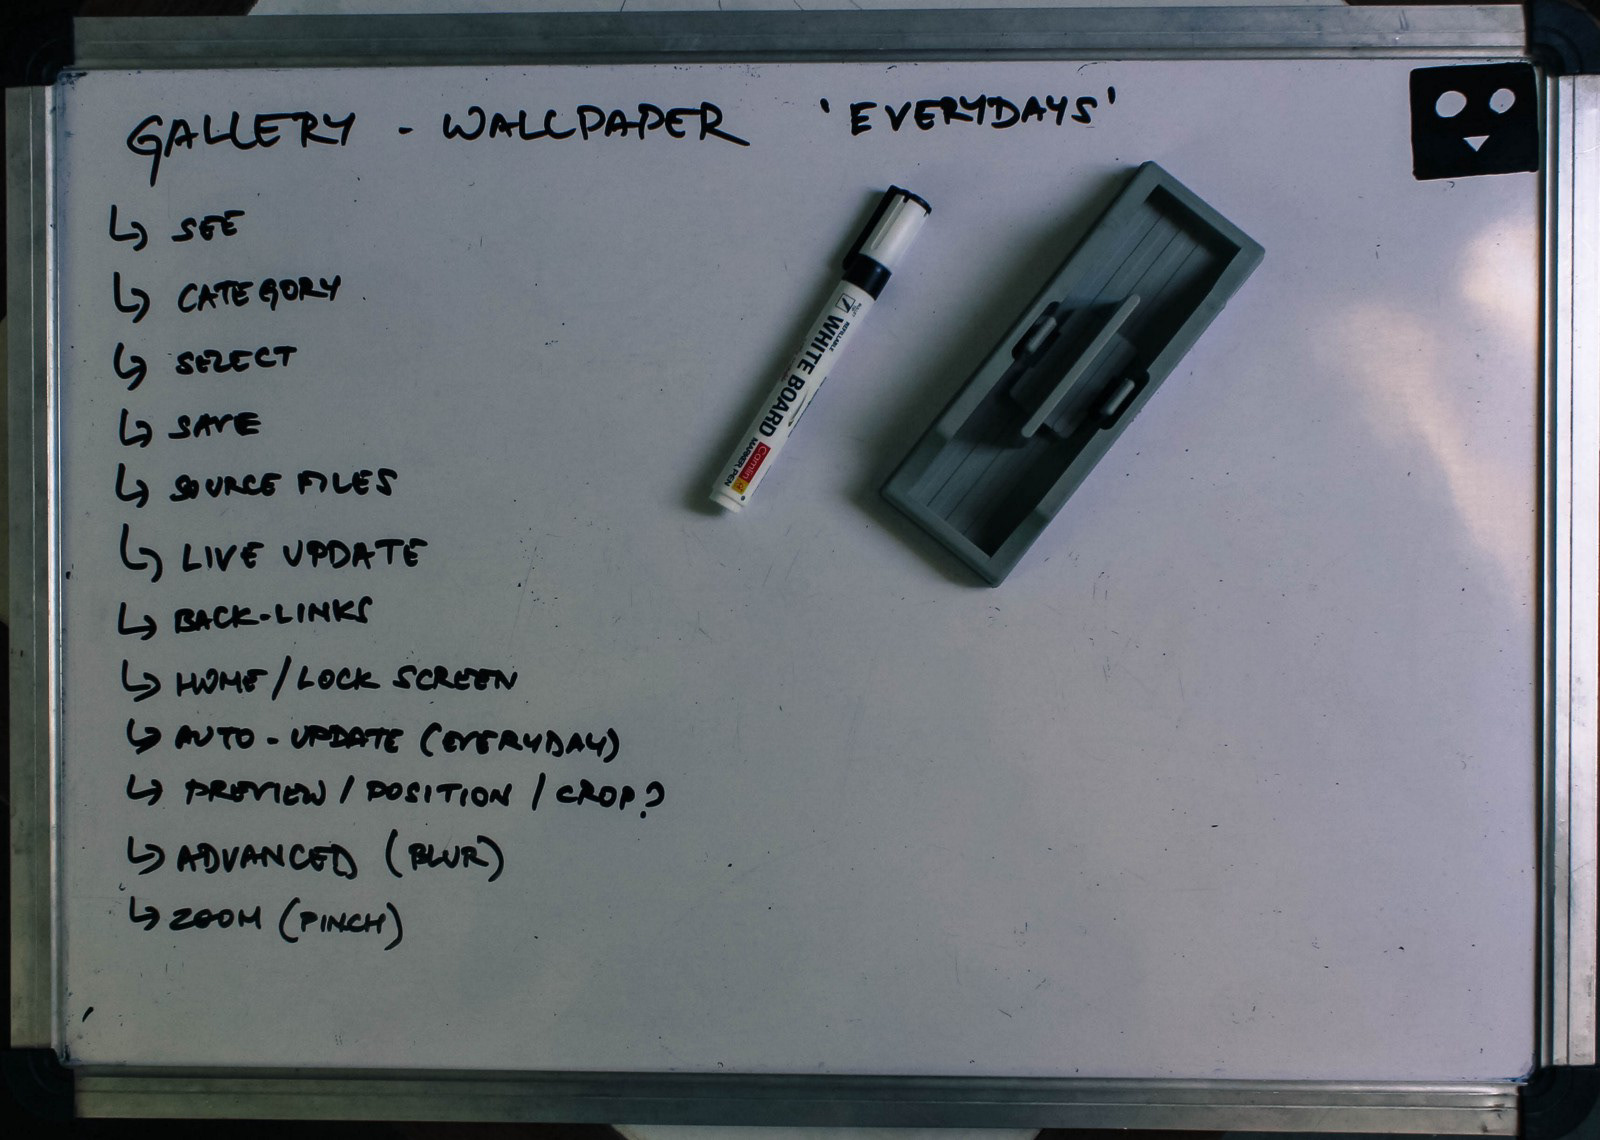 GALLERY - WALLPAPER 'EVERYDAYS'
↳ SEE
↳ CATEGORY
↳ SELECT
↳ SAVE
↳ SOURCE FILES
↳ LIVE UPDATE
↳ BACK-LINKS
↳ HOME/LOCK SCREEN
↳ AUTO-UPDATE (EVERYDAY)
↳ PREVIEW / POSITION / CROP?
↳ ADVANCED (BLUR)
↳ ZOOM (PINCH)
REFILLABLE
WHITE BOARD
MARKER PEN
Camlin